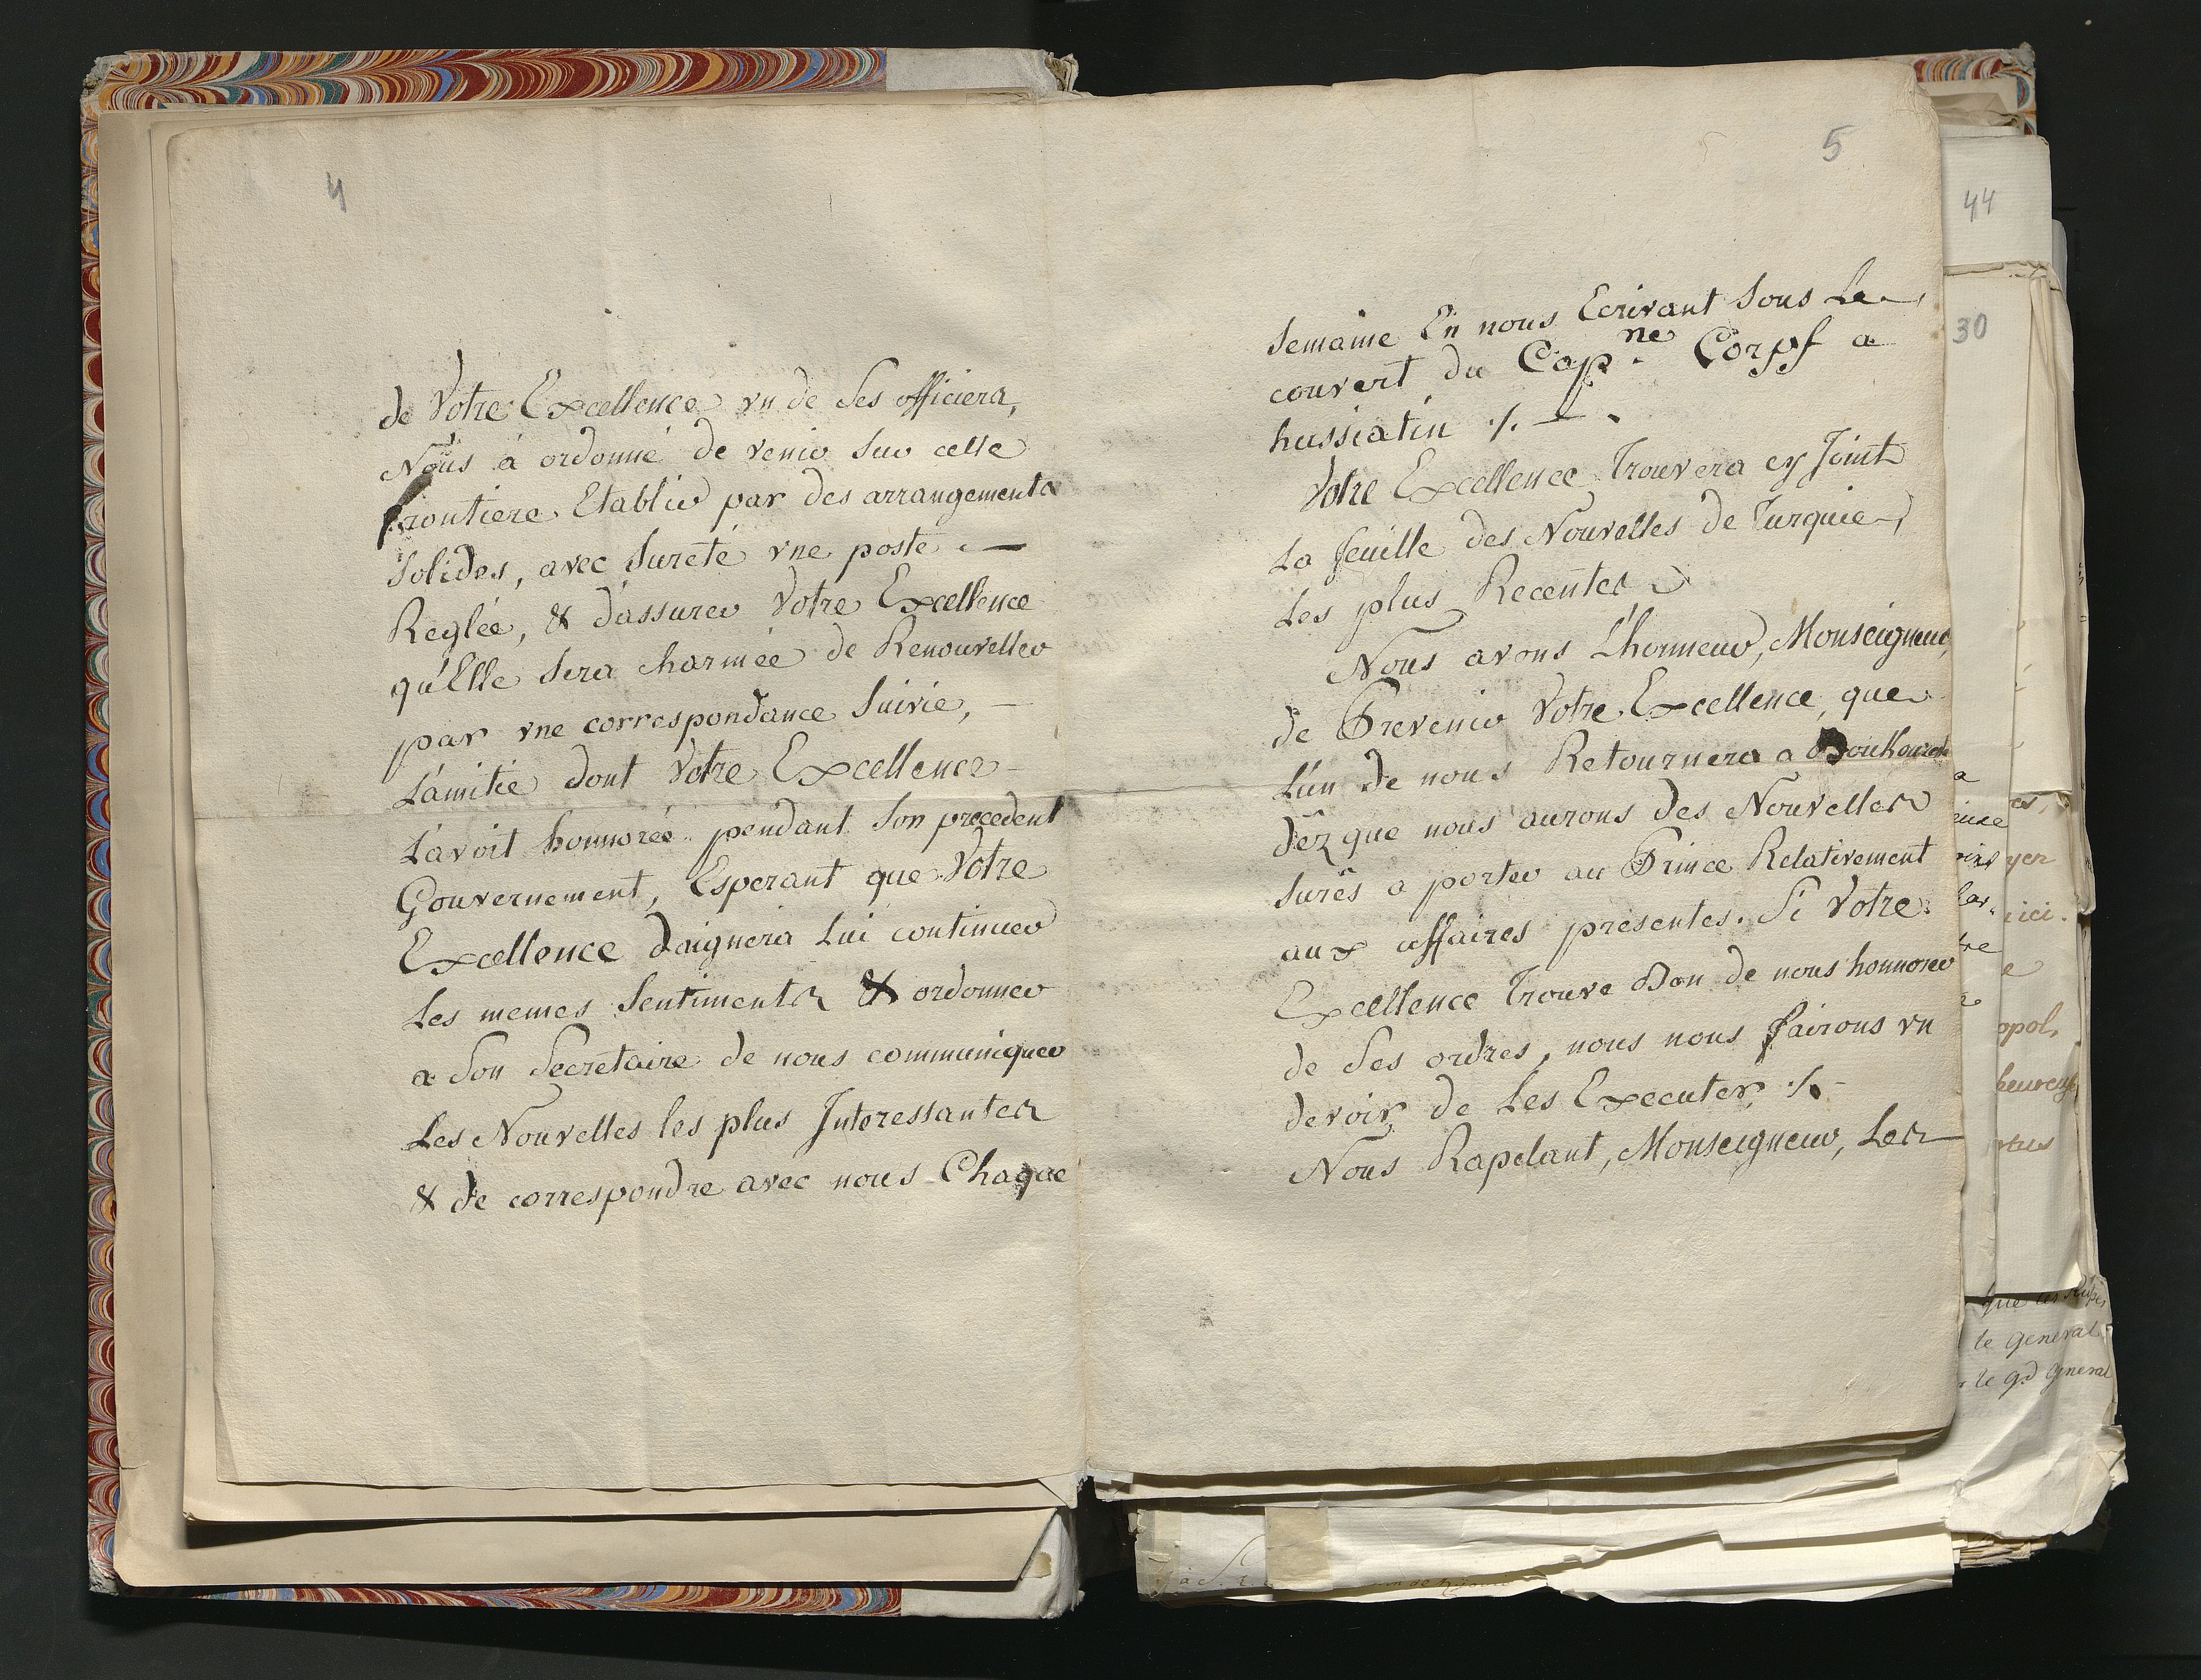 4
de Votre Excellence vn de Ses officiers,
Nous à ordonné de venir Sur cette
frontiere Etablir par des arrangements
Solides, avec Sureté vne poste
Reglée, & d'assurer Votre Excellence
qu'Elle Sera charmée de Renouveller
par vne correspondance Suivie, —
L'amitié dont Votre Excellence
L'avoit honnorée pendant Son precedent
Gouvernement, Esperant que Votre
Excellence daignera Lui continuer
Les memes Sentiments & ordonner
a Son Secretaire de nous communiquer
Les Nouvelles les plus Interessantes
& de correspondre avec nous Chaque
5
Semaine En nous Ecrivant Sous Le
couvert du Cap.ne Corpf a
hussiatin ./. —
Votre Excellence Trouvera cy Joint
La feuille des Nouvelles de Turquie
Les plus Recentes
Nous avons L'honneur, Monseigneur,
de Prevenir Votre Excellence, que
L'un de nous Retournera a Boukourest
dêz que nous aurons des Nouvelles
Surês a porter au Prince Relativement
aux affaires presentes. Si Votre
Excellence Trouve Bon de nous honnorer
de Ses ordres, nous nous fairons vn
devoir de Les Executer ./.
Nous Rapelant, Monseigneur, Les
44
30
que les
le general
le gd general